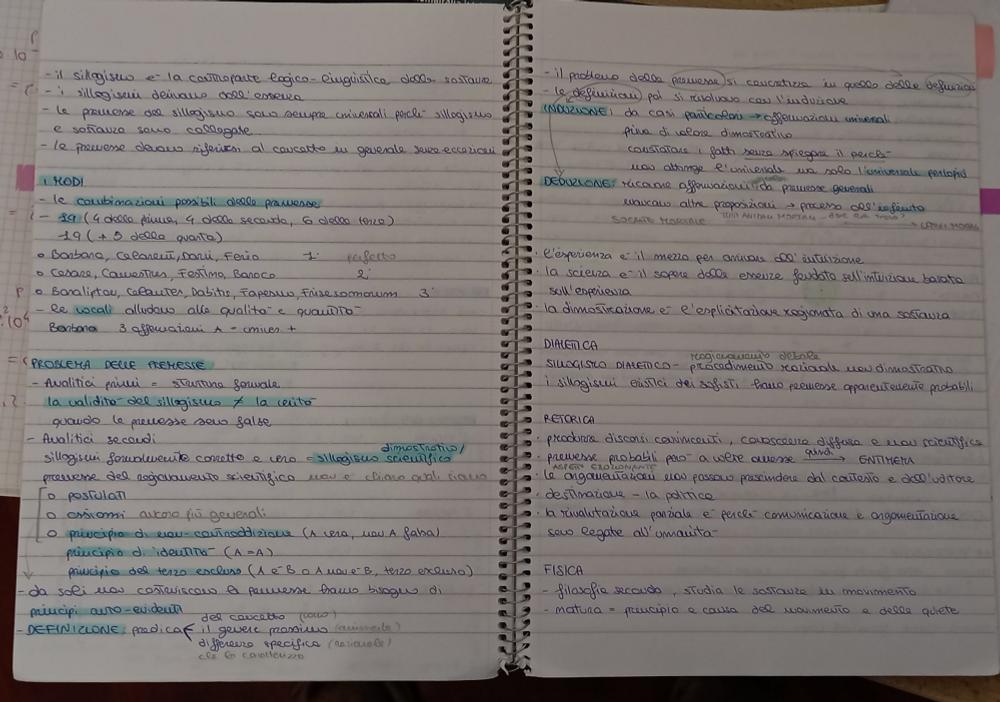 - il sillogismo è la controparte logico-linguistica della sostanza
- i sillogismi derivano dall'essenza
- le premesse del sillogismo sono sempre universali perchè sillogismo
e sostanza sono collegate
- le premesse devono riferirsi al concetto in generale senza eccezioni
I MODI
- le combinazioni possibili delle premesse
- 14 (4 della prima, 4 della seconda, 6 della terza)
19 (+ 5 della quarta)
o Barbara, Celarent, Darii, Ferio 1° perfetto
o Cesare, Camestres, Festino, Baroco 2°
o Baralipton, Celantes, Dabitis, Fapesmo, Frisesomorum 3°
- le vocali alludono alle qualità e quantità
Barbara 3 affermazioni A - univer +
PROBLEMA DELLE PREMESSE
- Analitici primi = struttura formale
la validità del sillogismo ≠ la verità
quando le premesse sono false
- Analitici secondi
dimostrativo/
sillogismi formalmente corretto e vero = sillogismo scientifico
premesse del ragionamento scientifico non è chiaro quali siano
o postulati
o assiomi ancora più generali
o principio di non-contraddizione (A vera, non A falsa)
principio di identità (A=A)
principio del terzo escluso (A è B o A non è B, terzo escluso)
- da soli non costituiscono le premesse hanno bisogno di
principi auto-evidenti
- DEFINIZIONE: predica del concetto (uomo)
il genere prossimo (animale)
differenza specifica (razionale)
che lo caratterizza
- il problema delle premesse si concretizza in quello delle definizioni
- le definizioni poi si risolvono con l'induzione
INDUZIONE: da casi particolari → affermazioni universali
priva di valore dimostrativo
constatare i fatti senza spiegare il perchè
non attinge l'universale ma solo l'universale perlopiù
DEDUZIONE: ricavare affermazioni da premesse generali
mancano altre proposizioni → processo all'infinito
SOCRATE MORTALE
· l'esperienza è il mezzo per arrivare all'intuizione
· la scienza è il sapere delle essenze fondato sull'intuizione basata
sull'esperienza
· la dimostrazione è l'esplicitazione ragionata di una sostanza
DIALETICA
ragionamento debole
SILLOGISMO DIALETICO - procedimento razionale non dimostrativo
i sillogismi eristici dei sofisti hanno premesse apparentemente probabili
RETORICA
· produrre discorsi convincenti, conoscenza diffusa e non scientifica
· premesse probabili però a volte omesse quindi → ENTIMEMA
ASPETTI EMOZIONANTE
· le argomentazioni non possono prescindere dal contesto e dall'uditore
· destinazione - la politica
· la rivalutazione parziale è perchè comunicazione e argomentazione
sono legate all'umanità
FISICA
- filosofia seconda, studia le sostanze in movimento
- natura = principio e causa del movimento e della quiete